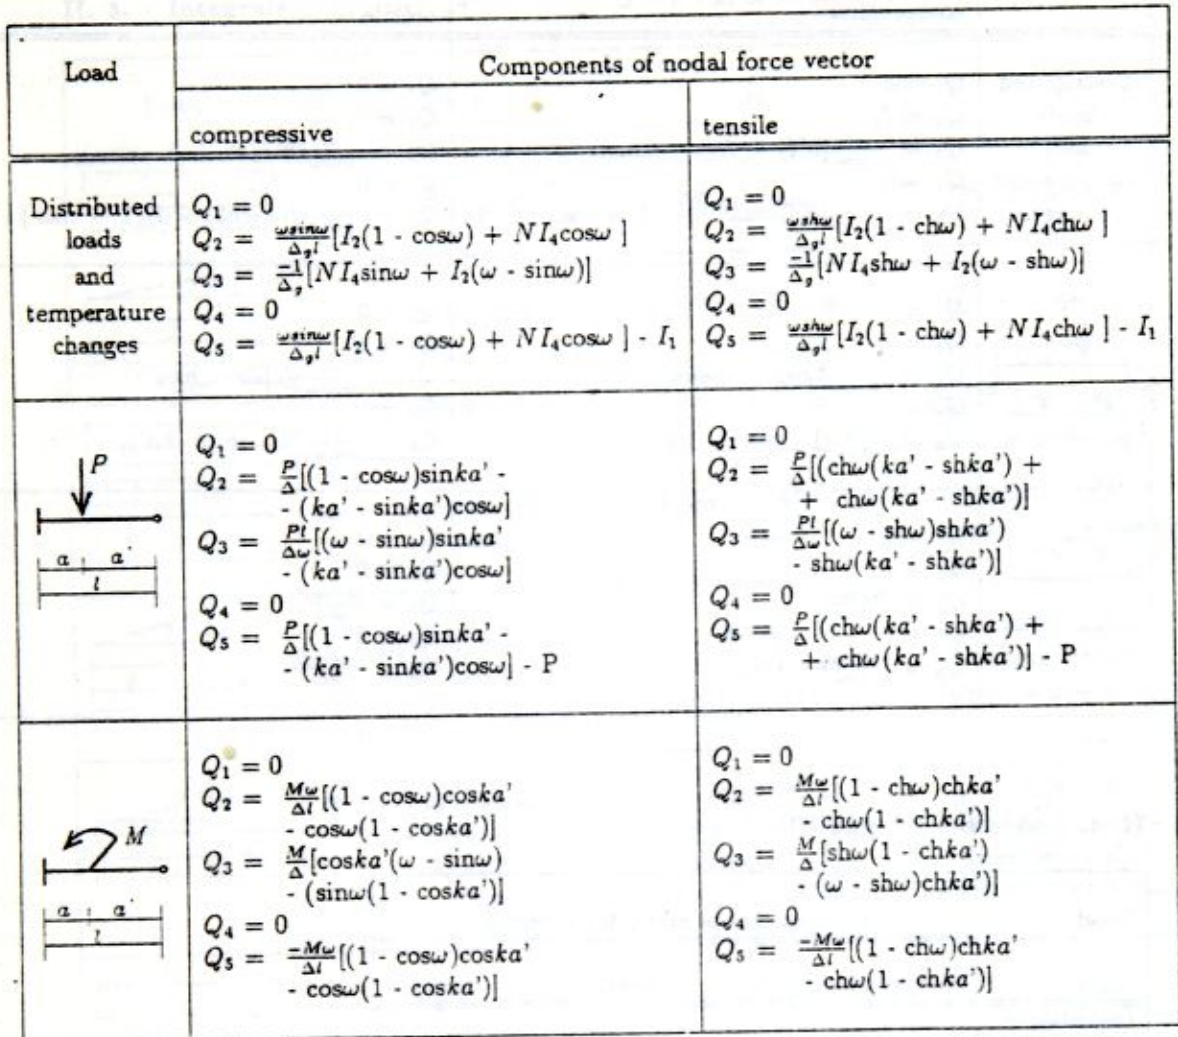 Load
Components of nodal force vector
compressive
tensile
Distributed
loads
and
temperature
changes
Q₁ = 0
Q₂ = ωsinω/Δ_gl [I₂(1 - cosω) + NI₄cosω ]
Q₃ = -1/Δ_g [NI₄sinω + I₂(ω - sinω)]
Q₄ = 0
Q₅ = ωsinω/Δ_gl [I₂(1 - cosω) + NI₄cosω ] - I₁
Q₁ = 0
Q₂ = ωshω/Δ_gl [I₂(1 - chω) + NI₄chω ]
Q₃ = -1/Δ_g [NI₄shω + I₂(ω - shω)]
Q₄ = 0
Q₅ = ωshω/Δ_gl [I₂(1 - chω) + NI₄chω ] - I₁
P
a a'
l
Q₁ = 0
Q₂ = P/Δ [(1 - cosω)sinka' -
- (ka' - sinka')cosω]
Q₃ = Pl/Δω [(ω - sinω)sinka'
- (ka' - sinka')cosω]
Q₄ = 0
Q₅ = P/Δ [(1 - cosω)sinka' -
- (ka' - sinka')cosω] - P
Q₁ = 0
Q₂ = P/Δ [(chω(ka' - shka') +
+ chω(ka' - shka')]
Q₃ = Pl/Δω [(ω - shω)shka')
- shω(ka' - shka')]
Q₄ = 0
Q₅ = P/Δ [(chω(ka' - shka') +
+ chω(ka' - shka')] - P
M
a a'
l
Q₁ = 0
Q₂ = Mω/Δl [(1 - cosω)coska'
- cosω(1 - coska')]
Q₃ = M/Δ [coska'(ω - sinω)
- (sinω(1 - coska')]
Q₄ = 0
Q₅ = -Mω/Δl [(1 - cosω)coska'
- cosω(1 - coska')]
Q₁ = 0
Q₂ = Mω/Δl [(1 - chω)chka'
- chω(1 - chka')]
Q₃ = M/Δ [shω(1 - chka')
- (ω - shω)chka')]
Q₄ = 0
Q₅ = -Mω/Δl [(1 - chω)chka'
- chω(1 - chka')]